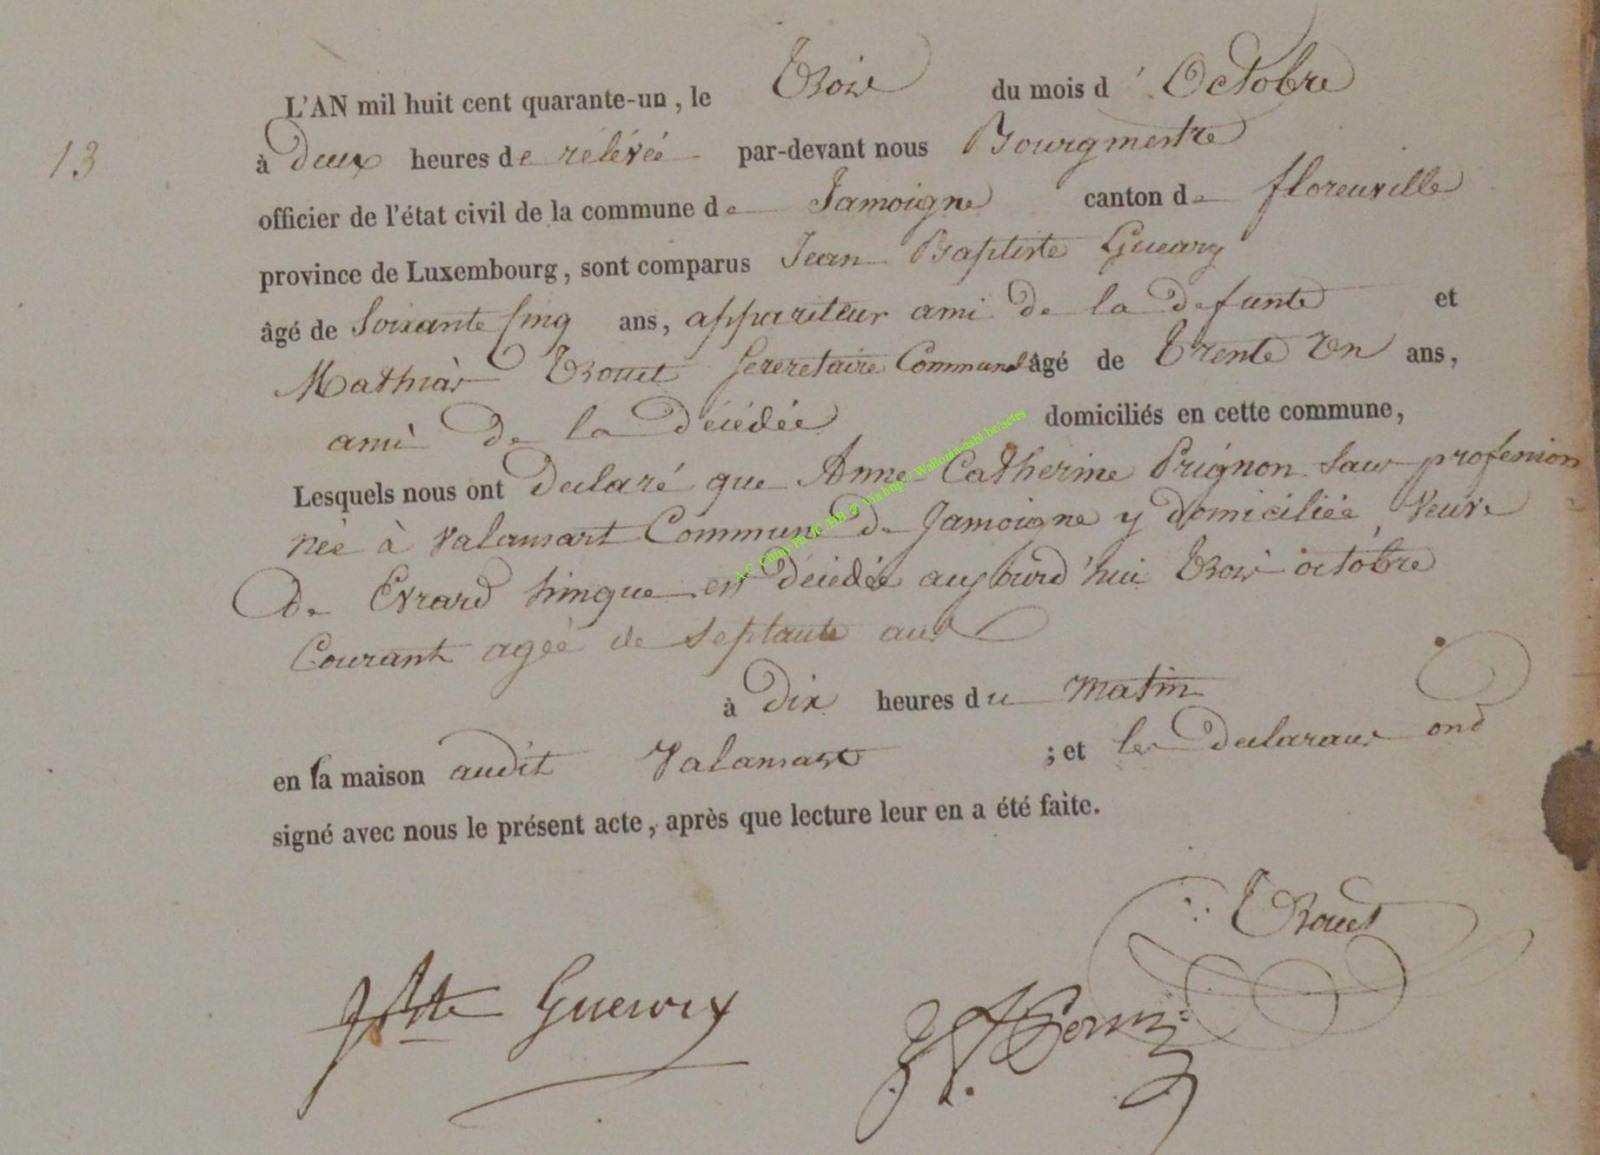 L'AN mil huit cent quarante-un, le Trois du mois d' Octobre
13
à Deux heures de rélévée par-devant nous Bourgmestre
officier de l'état civil de la commune de Jamoigne canton de florenville
province de Luxembourg, sont comparus Jean Baptiste
âgé de Soixante Cinq ans, appariteur ami de la défunte et
Mathias Trouet Secretaire Communal âgé de Trente Un ans,
ami de la Décédée domiciliés en cette commune,
Lesquels nous ont Declaré que Anne Catherine Prignon Sans profession
née à Valansart Commune de Jamoigne y domiciliée, Veuve
De Evrard est Décédée aujourd'hui Trois octobre
Courant agée de Septante ans
à Dix heures du Matin
en sa maison audit Valansart ; et les Declarans ont
signé avec nous le présent acte, après que lecture leur en a été faite.
Trouet